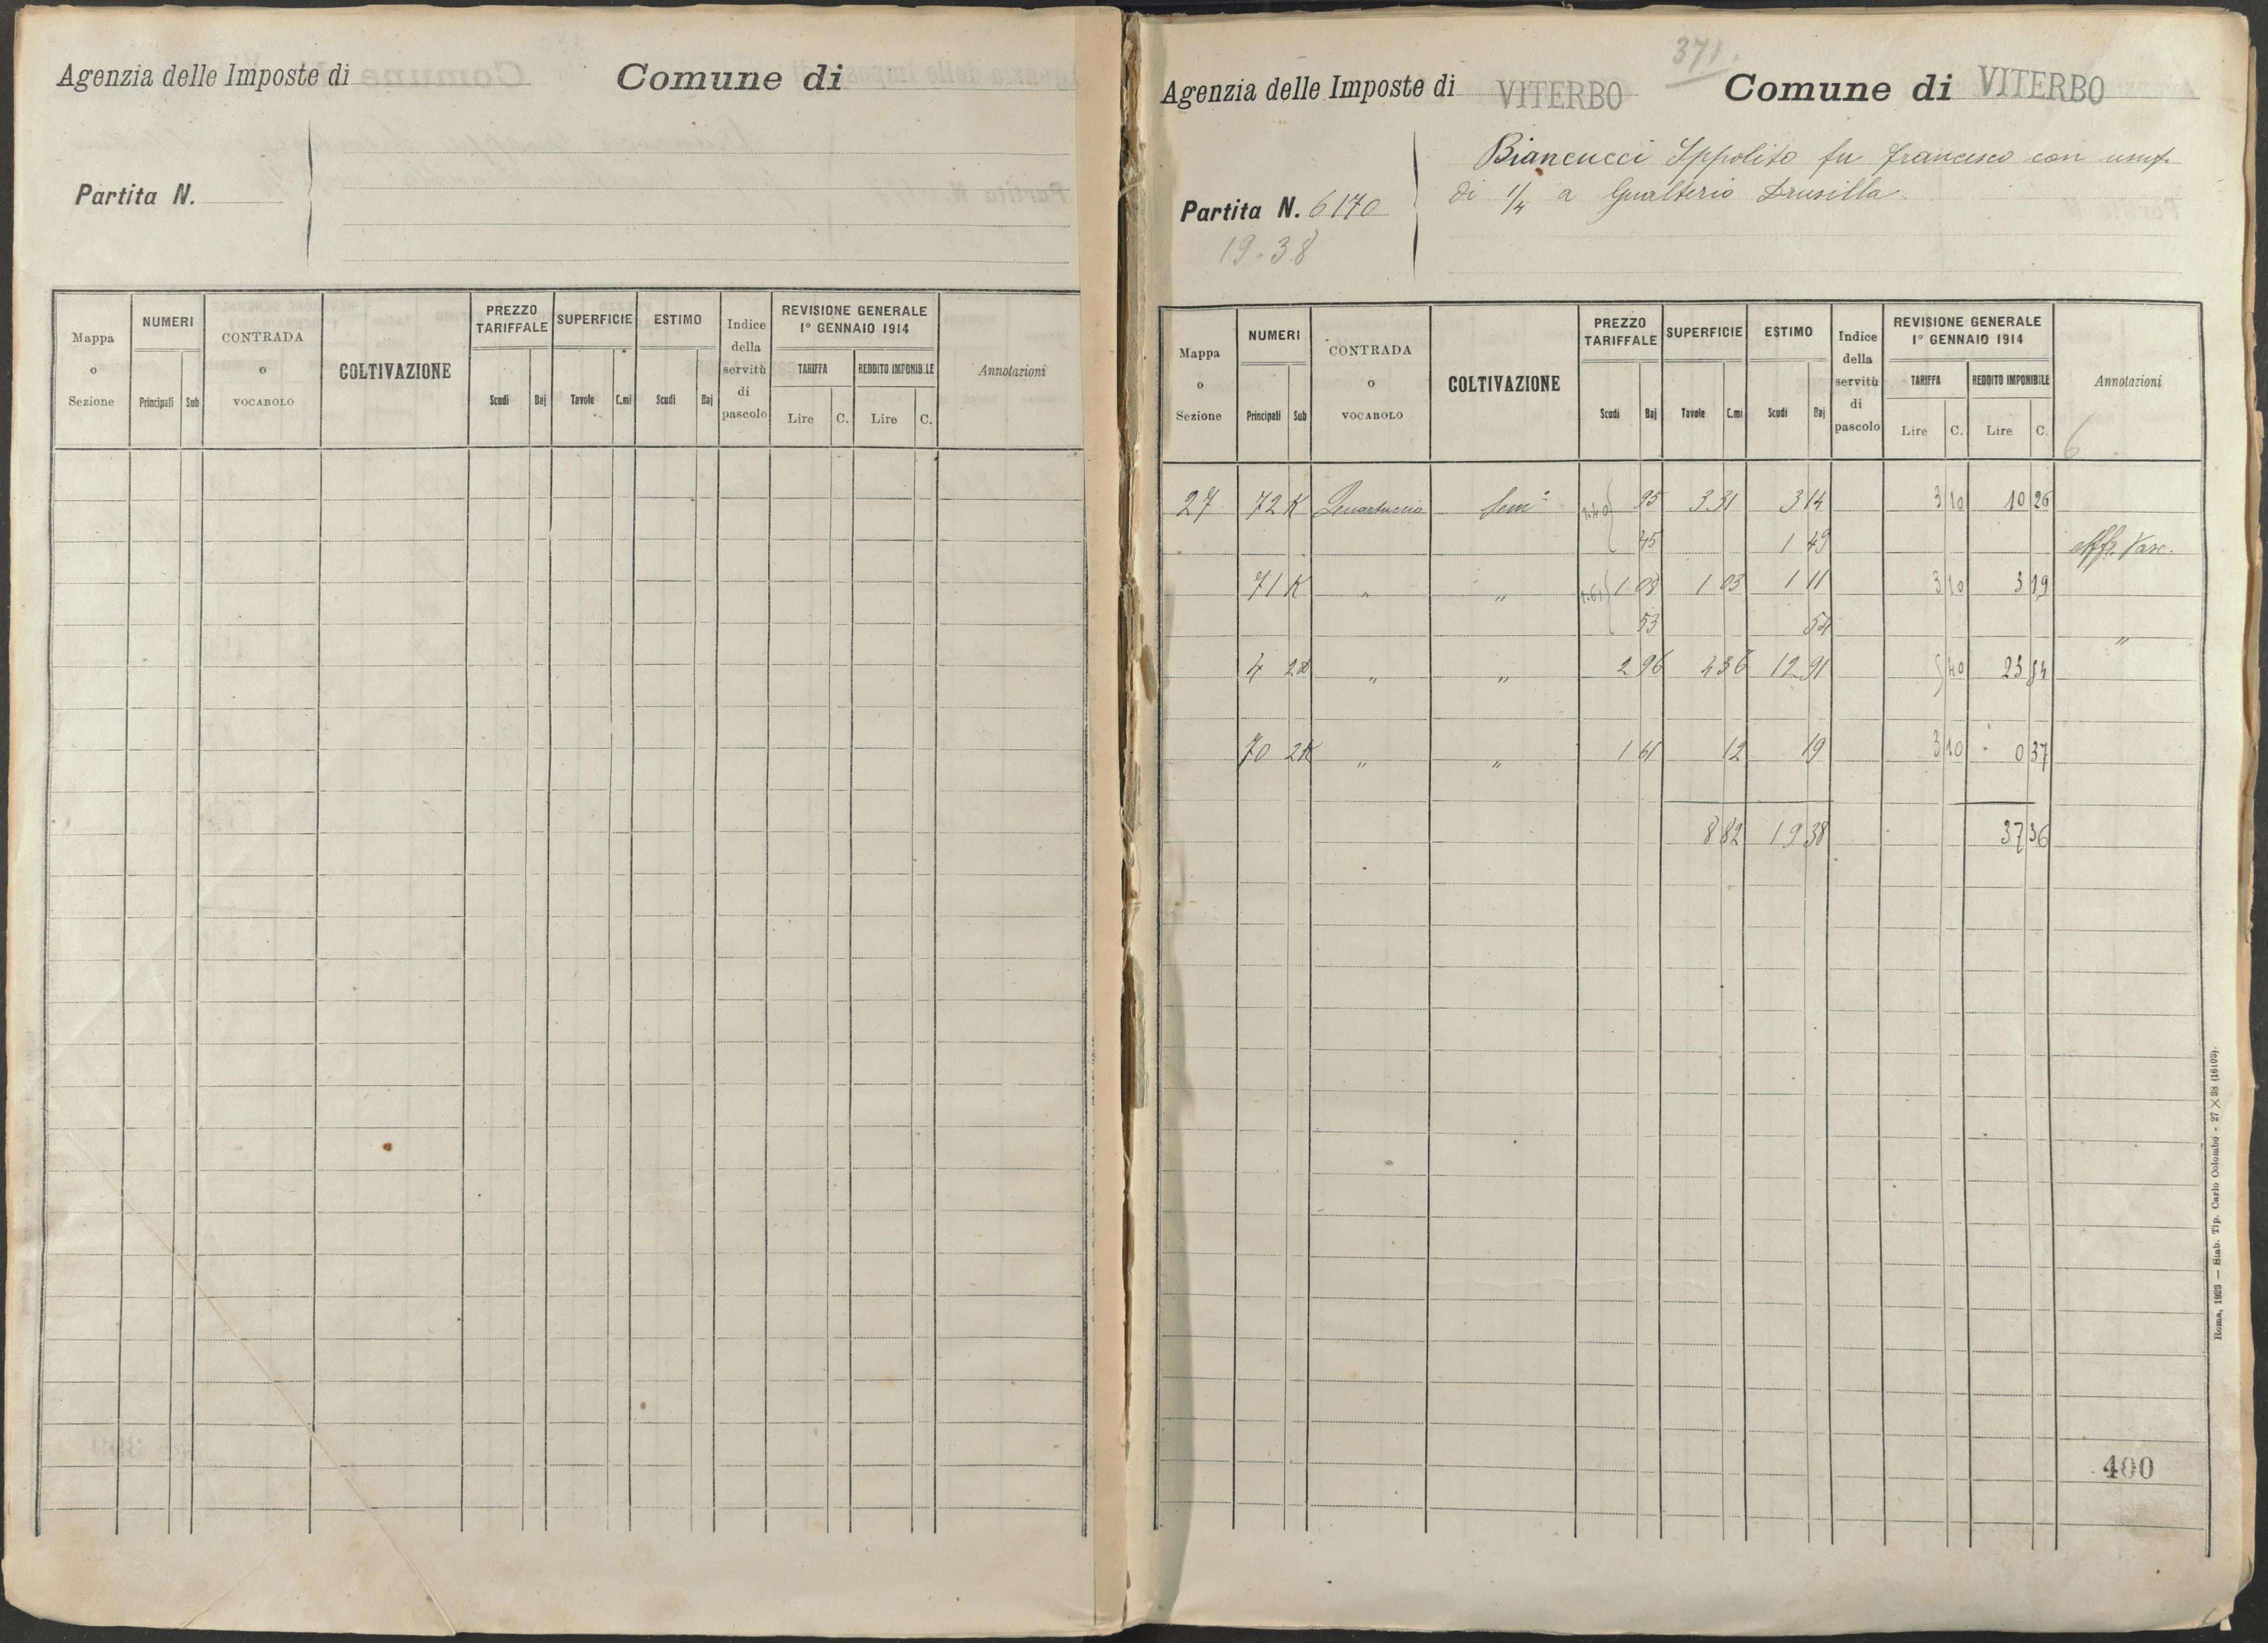 Agenzia delle Imposte di
Comune di
Partita N.
Mappa o Sezione
NUMERI
Principali Sub
CONTRADA o VOCABOLO
COLTIVAZIONE
PREZZO TARIFFALE
Scudi Baj
SUPERFICIE
Tavole C.mi
ESTIMO
Scudi Baj
Indice della servitù di pascolo
REVISIONE GENERALE
1° GENNAIO 1914
TARIFFA
Lire C.
REDDITO IMPONIBILE
Lire C.
Annotazioni
371.
Agenzia delle Imposte di VITERBO
Comune di VITERBO
Partita N. 6170
19.38
Biancucci Ippolito fu Francesco con usuf.
di 1/4 a Gualterio Drusilla.
Mappa o Sezione
NUMERI
Principali Sub
CONTRADA o VOCABOLO
COLTIVAZIONE
PREZZO TARIFFALE
Scudi Baj
SUPERFICIE
Tavole C.mi
ESTIMO
Scudi Baj
Indice della servitù di pascolo
REVISIONE GENERALE
1° GENNAIO 1914
TARIFFA
Lire C.
REDDITO IMPONIBILE
Lire C.
Annotazioni
6
27 72 K Quartuccio Sem° 1.40 95 3 31 3 14 3 10 10 26
45 1 49 Aff. Vasc.
71 K " " 1.61 1 08 1 03 1 11 3 10 3 19
53 54 "
4 " " 2 96 4 36 12 91 5 40 23 54
70 2K " " 1 61 12 19 3 10 0 37
8 82 19 38 37 36
400
Roma, 1923 — Stab. Tip. Carlo Colombo - 27 × 38 (16103).